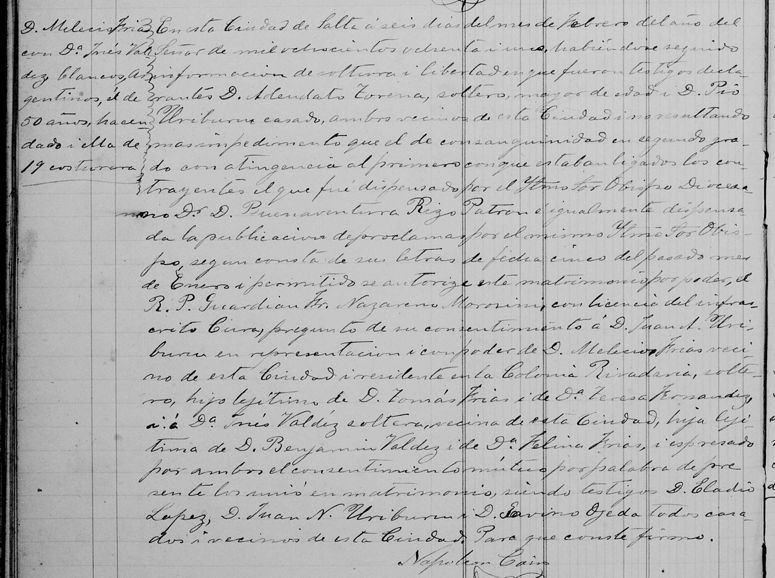 D. Melecio Frias
con Dª Inés Val
dez blancos, ar
gentinos, él de
50 años, hacen
dado i ella de
19 costurera
En esta Ciudad de Salta á seis dias del mes de Febrero del año del
Señor de mil ochocientos ochenta i uno, habiéndose seguido
informacion de soltura i libertad en que fueron testigos decla
rantes D. Adeudato Torena, soltero, mayor de edad i D. Pio
Uriburu casado, ambos vecinos de esta Ciudad i no resultando
mas impedimento que el de consanguinidad en segundo gra
do con atingencia al primero con que estaban ligados los con
trayentes el que fué dispensado por el Iltmo Sor Obispo Dioces
no Dr D. Buenaventura Rizo Patron é igualmente dispensa
da la publicacion de proclamas por el mismo Iltmo Sor Obis
po, segun consta de sus letras de fecha cinco del pasado mes
de Enero i permitido se autorize este matrimonio por poder, el
R. P. Guardian Fr. Nazareno Morosini, con licencia del infras
crito Cura, pregunto de su consentimiento á D. Juan N. Uri
buru en representacion i con poder de D. Melecio Frias veci
no de esta Ciudad i residente en la Colonia Rivadavia, solte
ro, hijo lejitimo de D. Tomás Frias i de Dª Teresa Fernandez,
i á Dª Inés Valdéz soltera, vecina de esta Ciudad, hija leji
tima de D. Benjamin Valdez i de Dª Felina Frias, i espresado
por ambos el consentimiento mútuo por palabra de pre
sente los unió en matrimonio, siendo testigos D. Eladio
Lopez, D. Juan N. Uriburu i D. Savino Ojeda todos casa
dos i vecinos de esta Ciudad. Para que conste firmo.
Napoleon Cain